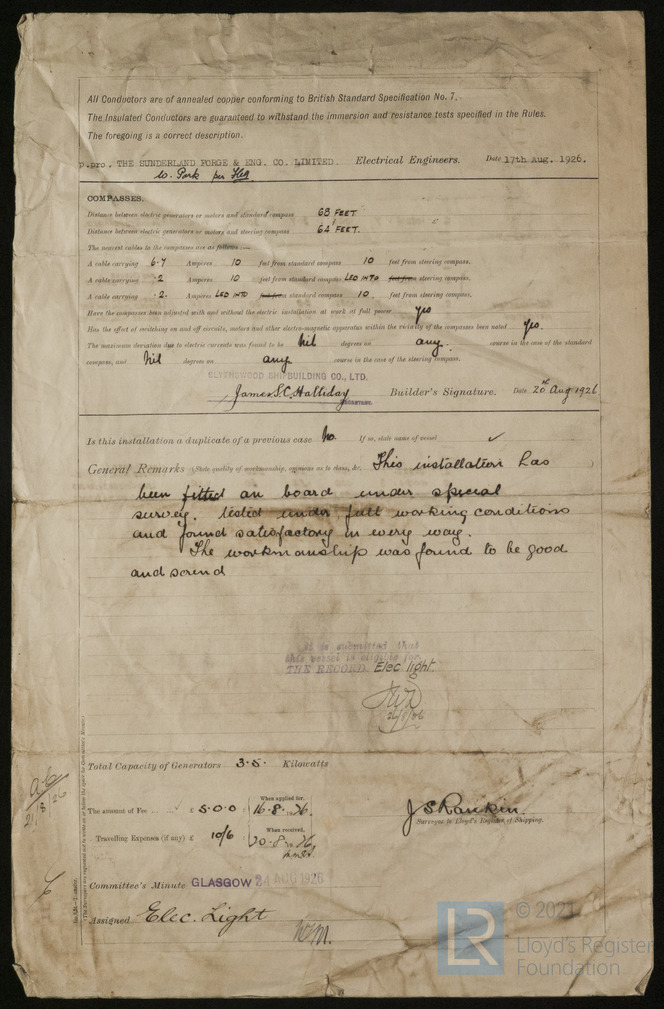 All Conductors are of annealed copper conforming to British Standard Specification No. 7.
The Insulated Conductors are guaranteed to withstand the immersion and resistance tests specified in the Rules.
The foregoing is a correct description.
p.pro. THE SUNDERLAND FORGE & ENG. CO. LIMITED. Electrical Engineers. Date 17th Aug. 1926.
W. Park per
COMPASSES.
Distance between electric generators or motors and standard compass 68 FEET
Distance between electric generators or motors and steering compass 64 FEET.
The nearest cables to the compasses are as follows:—
A cable carrying 6.7 Ampères 10 feet from standard compass 10 feet from steering compass.
A cable carrying .2 Ampères 10 feet from standard compass LED INTO feet from steering compass.
A cable carrying .2. Ampères LED INTO feet from standard compass 10. feet from steering compass.
Have the compasses been adjusted with and without the electric installation at work at full power yes
Has the effect of switching on and off circuits, motors and other electro-magnetic apparatus within the vicinity of the compasses been noted yes.
The maximum deviation due to electric currents was found to be Nil degrees on any. course in the case of the standard
compass, and Nil degrees on any course in the case of the steering compass.
BLYTHSWOOD SHIPBUILDING CO., LTD.
James S. C. Halliday Builder's Signature. Date 20th Aug 1926
SECRETARY.
Is this installation a duplicate of a previous case No. If so, state name of vessel
General Remarks (State quality of workmanship, opinions as to class, &c. This installation has
been fitted on board under special
survey. tested under full working conditions
and found satisfactory in every way.
The workmanship was found to be good
and sound
It is submitted that
this vessel is eligible for
THE RECORD. Elec. light.
26/8/26
Total Capacity of Generators 3.5. Kilowatts
The amount of Fee ... £ 5.0.0 When applied for, 16.8.26.
Travelling Expenses (if any) £ 10/6 When received, 20.8.26
J S Rankin.
Surveyor to Lloyd's Register of Shipping.
21/8/26
Committee's Minute GLASGOW 24 AUG 1926
Assigned Elec. Light
© 2021
Lloyd's Register
Foundation
LR